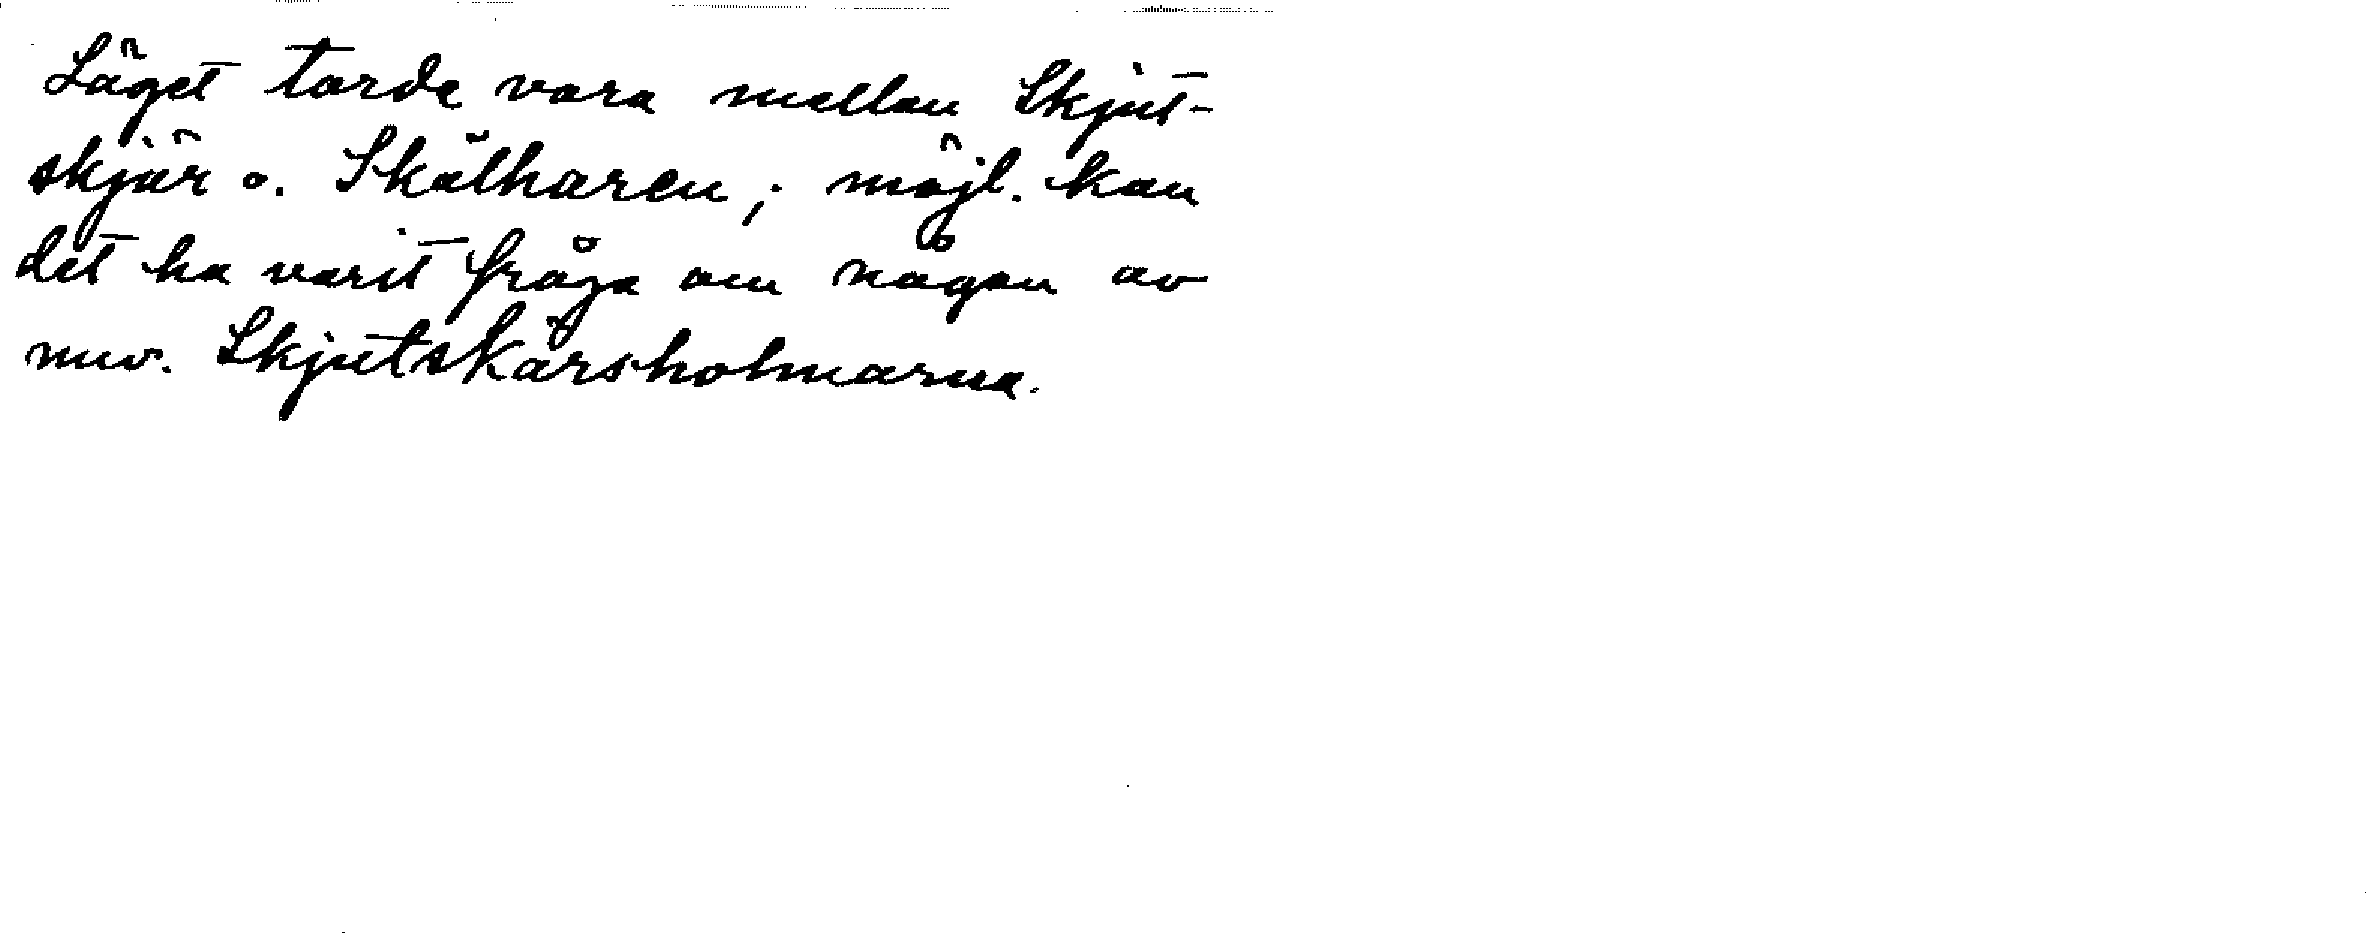 Läget torde vara mellan Skjut-
skjär o. Skälharen; möjl. kan
det ha varit fråga om någon av
nuv. Skjutskärsholmarna.